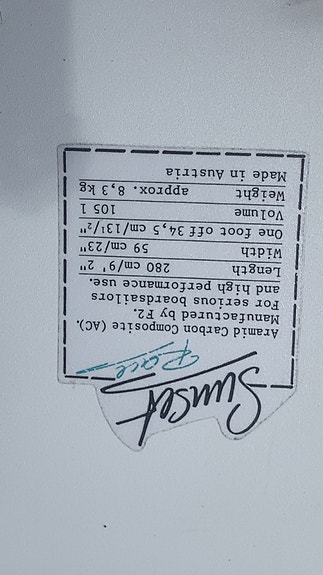 Sunset
Race
Aramid Carbon Composite (AC).
Manufactured by F2.
For serious boardsailors
and high performance use.
Length 280 cm/9' 2"
Width 59 cm/23"
One foot off 34,5 cm/13½"
Volume 105 l
Weight approx. 8,3 kg
Made in Austria